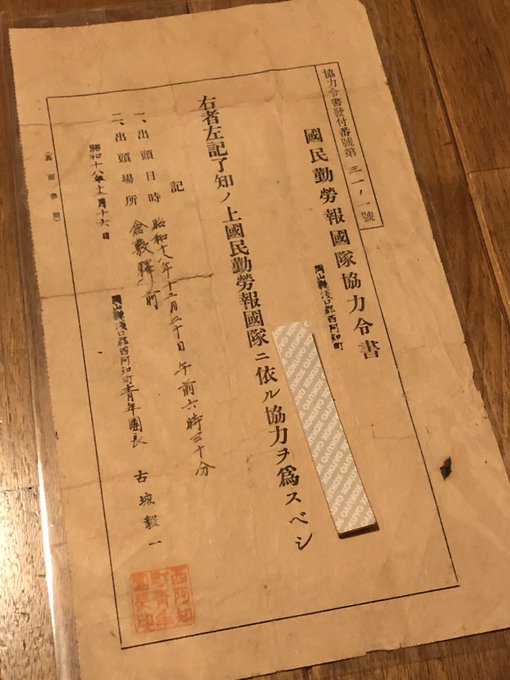 協力令書發付番號第三一ノ一號
國民勤勞報國隊協力令書
岡山縣淺口郡西阿知町
KOKUYO KOKUYO KOKUYO
右者左記了知ノ上國民勤勞報國隊ニ依ル協力ヲ爲スベシ
記
一、出頭日時 昭和十八年十二月二十日 午前六時三十分
二、出頭場所 倉敷驛前
昭和十八年十二月十六日
岡山縣淺口郡西阿知町青年團長 古城毅一
西阿知町青年團長印